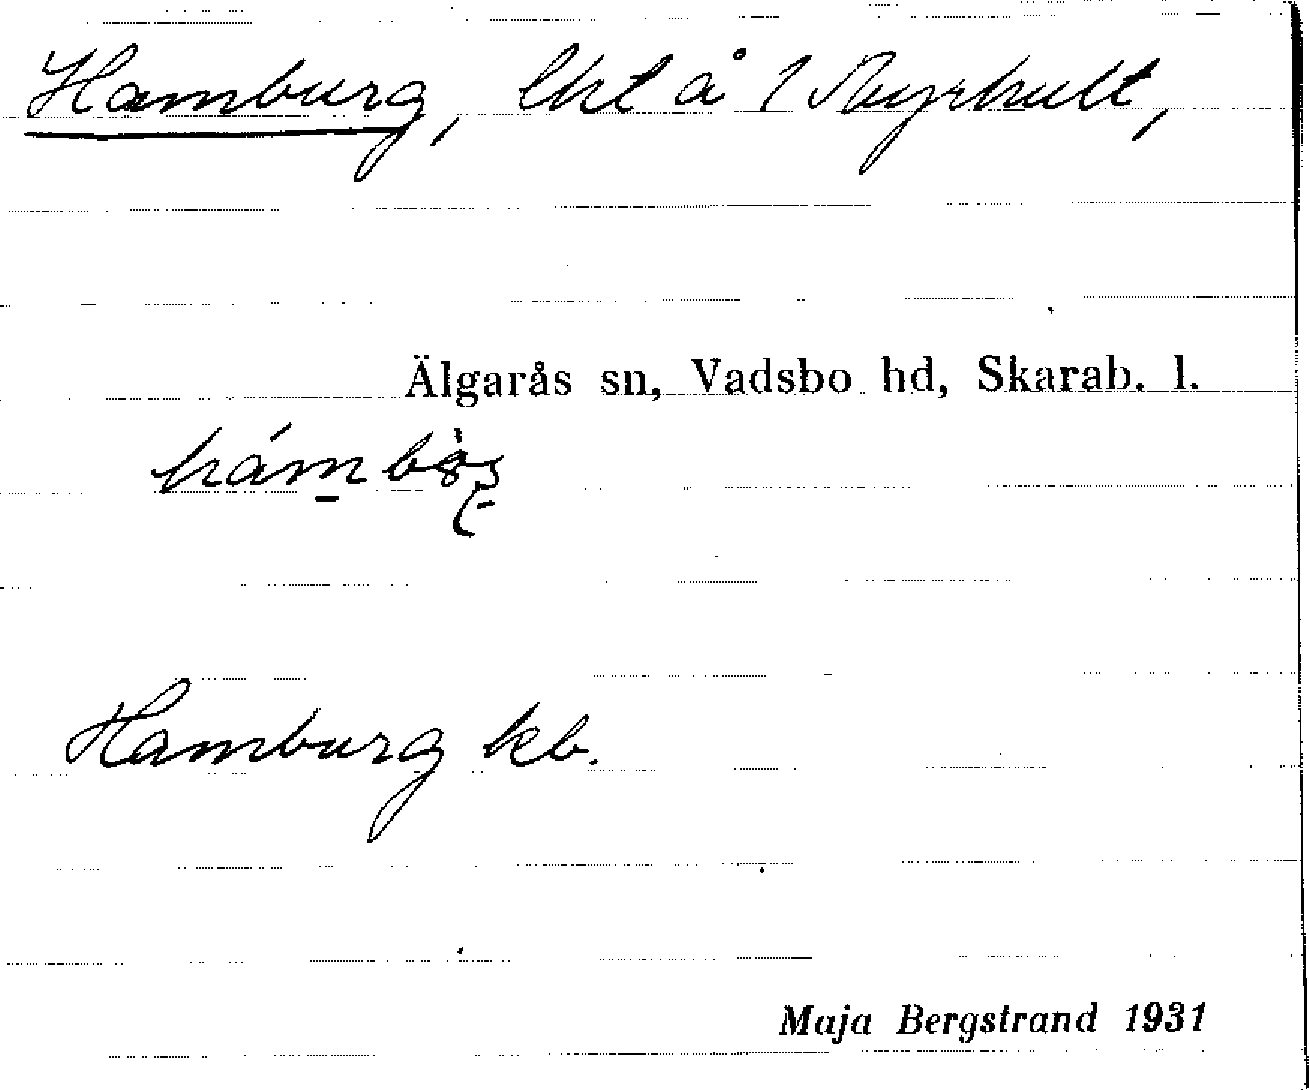 Hamburg, lht å 1 Styrhult,
Älgarås sn, Vadsbo hd, Skarab. l.
Hamburg kb.
Maja Bergstrand 1931